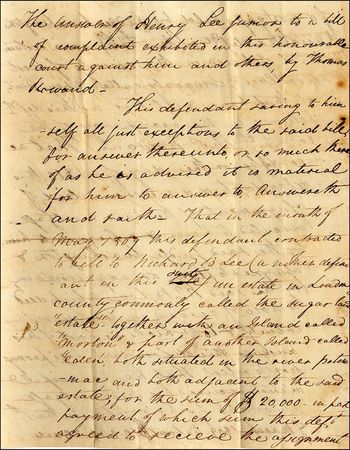 The answer of Henry Lee junior to a bill
of complaint exhibited in this honourable
court against him and others, by Thomas
Rowand –
This defendant saving to him
-self all just exceptions to the said bill,
for answer thereunto, or so much there
of as he is advised it is material
for him to answer to, Answereth
and saith – That in the month of
May 1807 this defendant contracted
to sell to Richard B Lee (another defend
ant in this suit) an estate in Loudon
county commonly called the sugar land
"estate" together with an Island called
"Morton" & part of another Island called
"Eden", both situated in the river potow
-mac and both adjacent to the said
estate; for the sum of $20,000 – in part
payment of which sum this deft
agreed to recieve the assignment